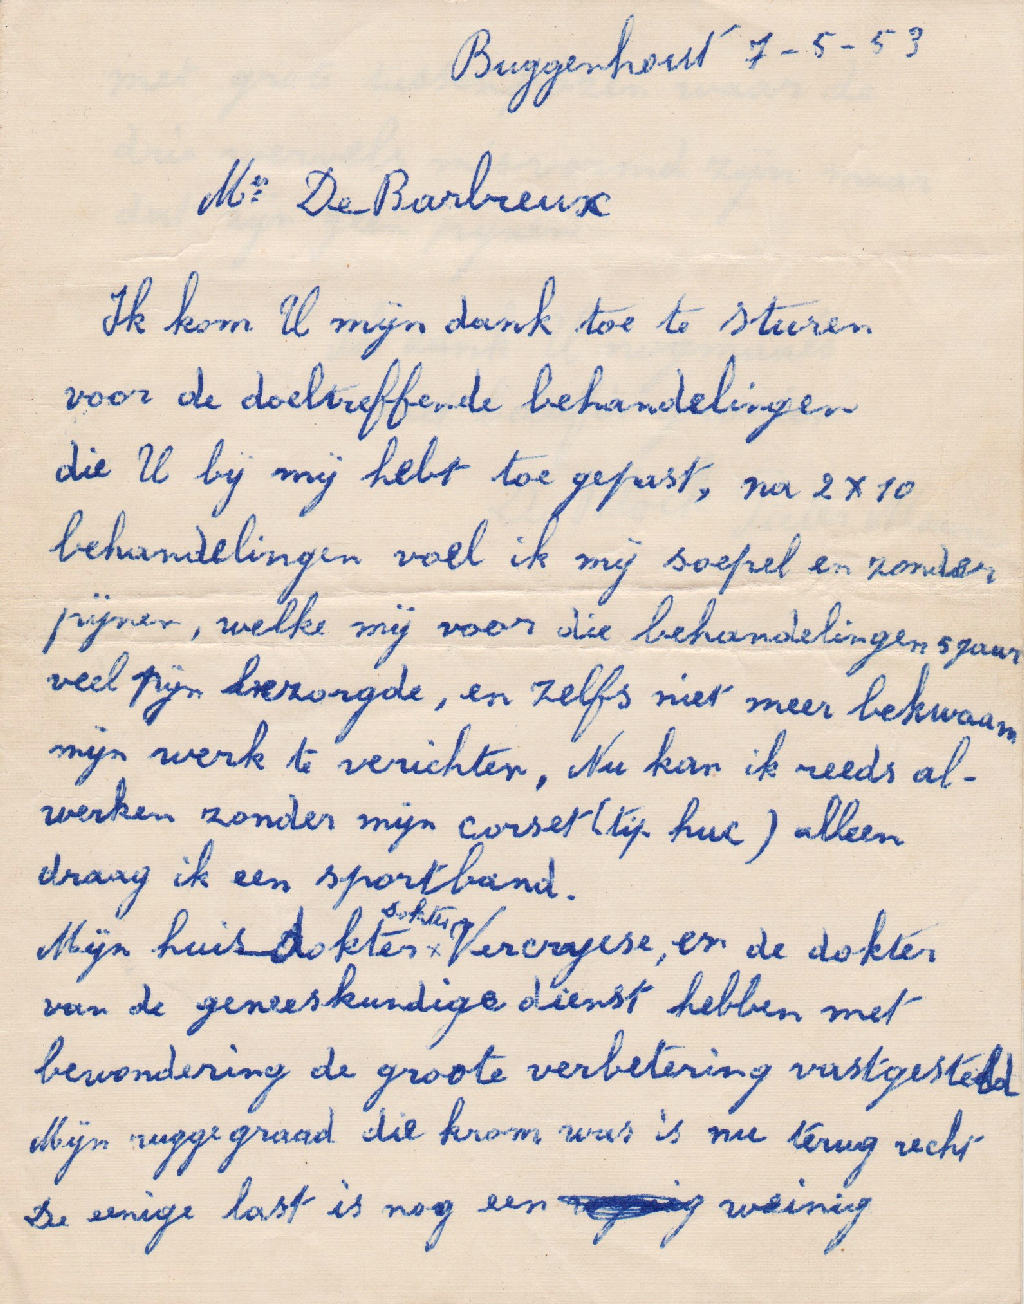 Buggenhout 7-5-53
Mr De Barbreux
Ik kom U mijn dank toe te sturen
voor de doeltreffende behandelingen
die U bij mij hebt toe gepast, na 2 x 10
behandelingen voel ik mij soepel en zonder
pijnen, welke mij voor die behandelingen 5 jaar
veel pijn bezorgde, en zelfs niet meer bekwaam
mijn werk te verichten, Nu kan ik reeds al-
werken zonder mijn corset (tip huc) alleen
draag ik een sportband.
dokter
Mijn huis dokter x Vercruyese, en de dokter
van de geneeskundige dienst hebben met
bewondering de groote verbetering vastgesteld
Mijn ruggegraad die krom was is nu terug recht
De eenige last is nog een weinig